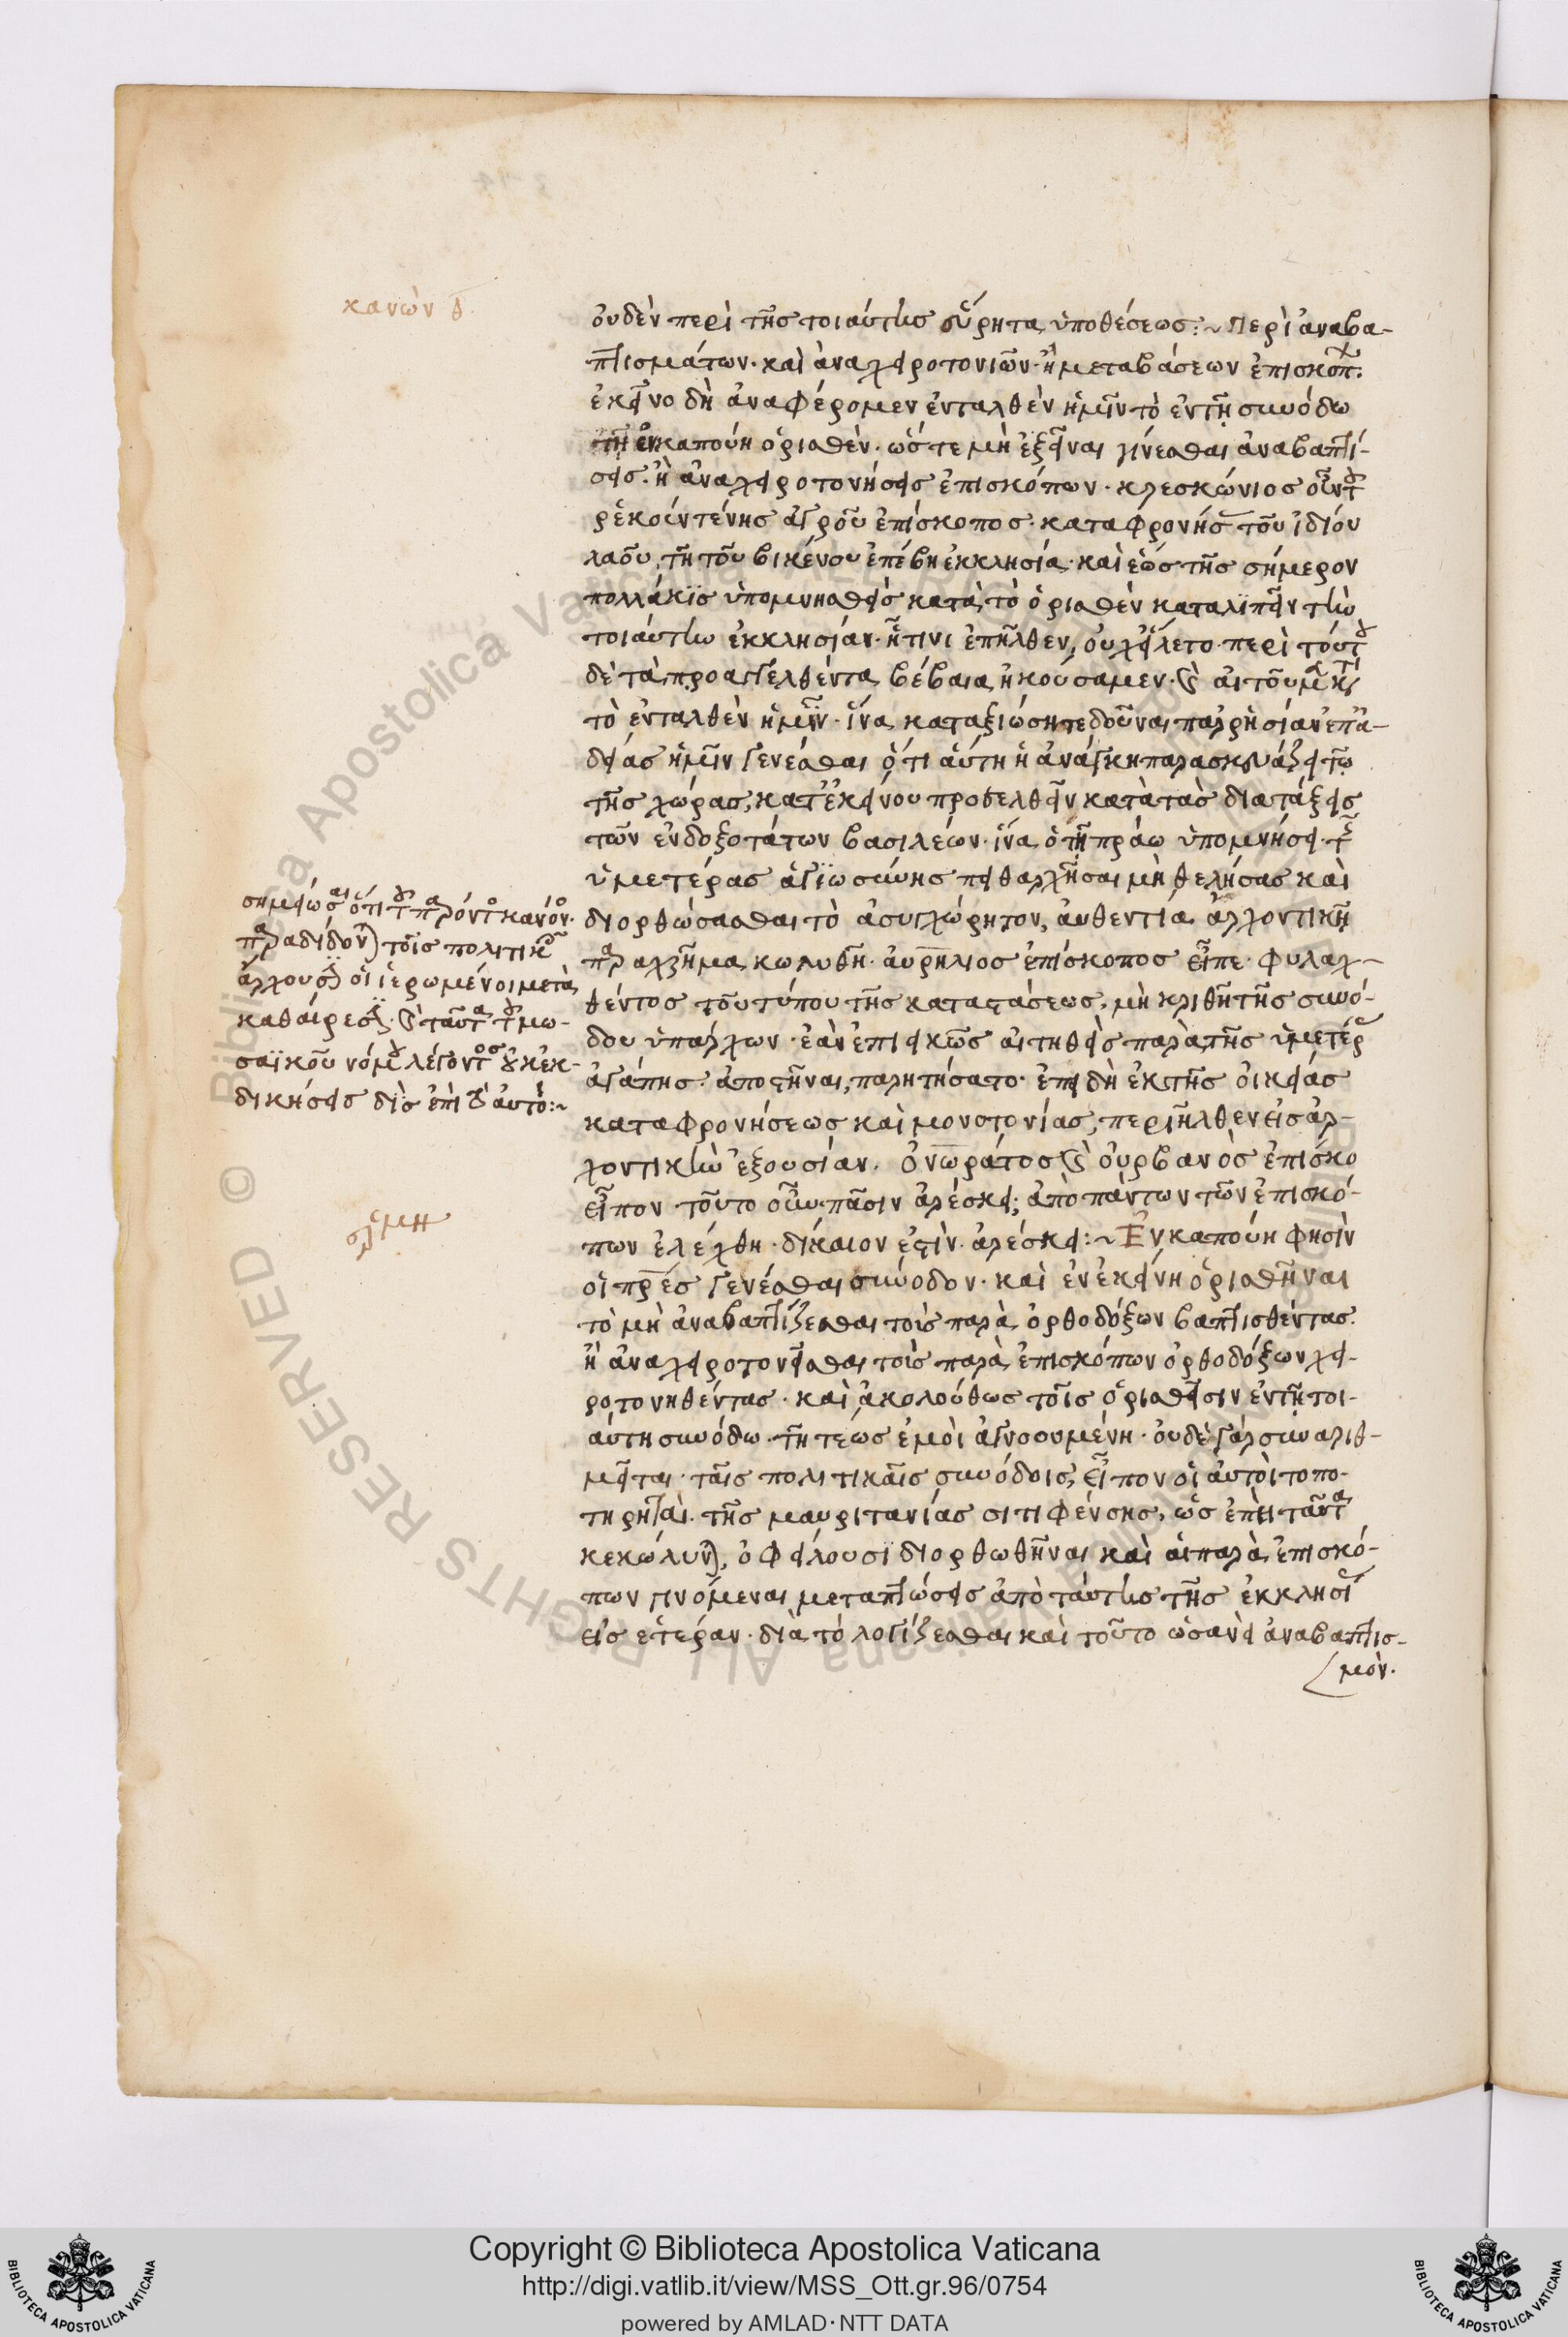 κανὼν δ
οὐδὲν περὶ τῆς τοιαύτης εὕρηται ὑποθέσεως :~ Περὶ ἀναβα-
πτισμάτων· καὶ ἀναχειροτονιῶν· ἢ μεταβάσεων ἐπισκόπ.
ἐκεῖνο δὴ ἀναφέρομεν ἐνταλθὲν ἡμῖν τὸ ἐν τῇ συνόδω
τῇ ἐν καπούη ὁρισθέν· ὥστε μὴ ἐξεῖναι γίνεσθαι ἀναβαπτί-
σεις· ἢ ἀναχειροτονήσεις ἐπισκόπων· κλεσκώνιος
ἀγροῦ ἐπίσκοπος· καταφρονήσ τοῦ ἰδίου
λαοῦ, τῇ τοῦ βικένσου ἐπέβη ἐκκλησία· καὶ ἕως τῆς σήμερον
πολλάκις ὑπομνησθεὶς κατὰ τὸ ὁρισθὲν καταλιπεῖν τὴν
τοιαύτην ἐκκλησίαν· ᾗτινι ἐπῆλθεν, οὐχ εἵλετο· περὶ τούτου
δὲ τὰ προαγγελθέντα βέβαια ἠκούσαμεν· καὶ αἰτοῦμεν κατὰ
τὸ ἐνταλθὲν ἡμῖν· ἵνα καταξιώσητε δοῦναι παρρησίαν ἐπ' ἀ-
δείας ἡμῖν γενέσθαι ὅτι αὕτη ἡ ἀνάγκη παρασκευάζει τῶ
τῆς χώρας, κατ' ἐκείνου προσελθεῖν κατὰ τὰς διατάξεις
τῶν ἐνδοξοτάτων βασιλέων· ἵνα ὁ τῇ πράω ὑπομνήσει τῆς
ὑμετέρας ἁγιωσύνης πειθαρχῆσαι μὴ θελήσας καὶ
διορθώσασθαι τὸ ἀσυγχώρητον, αὐθεντία ἀρχοντικῆ
παραχρῆμα κωλυθῆ· αὐρήλιος ἐπίσκοπος εἶπε· φυλαχ-
θέντος τοῦ τύπου τῆς καταστάσεως, μὴ κριθῆ τῆς συνό-
δου ὑπάρχων· ἐὰν ἐπιεικῶς αἰτηθεὶς παρὰ τῆς ὑμετέρας
ἀγάπης· ἀποστῆναι, παρητήσατο· ἐπειδὴ ἐκ τῆς οἰκείας
καταφρονήσεως καὶ μονοτονίας, περιῆλθεν εἰς ἀρ-
χοντικὴν ἐξουσίαν. ὀνωράτος καὶ οὐρβανὸς ἐπίσκο
εἶπον· τοῦτο οὖν πᾶσιν ἀρέσκει; ἀπὸ πάντων τῶν ἐπισκό-
πων ἐλέχθη· δίκαιον ἐστίν· ἀρέσκει :~ Ἐν καπούη φησὶν
οἱ πρες γενέσθαι σύνοδον· καὶ ἐν ἐκείνη ὁρισθῆναι
τὸ μὴ ἀναβαπτίζεσθαι τοὺς παρὰ ὀρθοδόξων βαπτισθέντας·
ἢ ἀναχειροτονεῖσθαι τοὺς παρὰ ἐπισκόπων ὀρθοδόξων χει-
ροτονηθέντας· καὶ ἀκολούθως τοῖς ὁρισθεῖσιν ἐν τῇ τοι-
αύτη συνόδω· τῇ τέως ἐμοὶ ἀγνοουμένη· οὐδὲ γὰρ συναριθ-
μεῖται· ταῖς πολιτικαῖς συνόδοις, εἶπον οἱ αὐτοὶ τοπο-
τηρηταὶ τῆς μαυριτανίας σιτιφένσης, ὡς ἐπεὶ ταῦτα
κεκώλυνται, ὀφείλουσι διορθωθῆναι καὶ αἱ παρὰ ἐπισκό-
πων γινόμεναι μεταπτώσεις ἀπὸ ταύτης τῆς ἐκκλησίας
εἰς ἑτέραν· διὰ τὸ λογίζεσθαι καὶ τοῦτο ὡσανεὶ ἀναβαπτισ-
μόν.
σημείωσαι ὅτι τοῦ παρόντος κανόνος
παραδίδονται τοῖς πολιτικοῖς
ἄρχουσιν οἱ ἱερωμένοι μετὰ
καθαίρεσιν· καὶ ταῦτα τοῦ μω-
σαϊκοῦ νόμου λέγοντος οὐκ ἐκ-
δικήσεις δὶς ἐπὶ τὸ αὐτό :~
Copyright © Biblioteca Apostolica Vaticana
http://digi.vatlib.it/view/MSS_Ott.gr.96/0754
powered by AMLAD·NTT DATA
BIBLIOTECA APOSTOLICA VATICANA
BIBLIOTECA APOSTOLICA VATICANA
Biblioteca Apostolica Vaticana ALL RIGHTS RESERVED ©